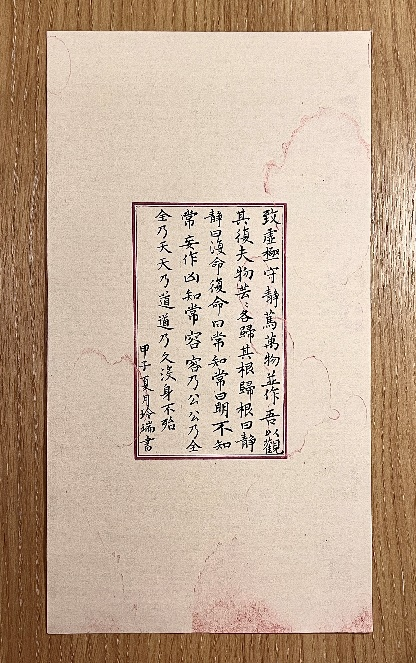 致虛極守靜篤萬物並作吾以觀
其復夫物芸芸各歸其根歸根曰靜
靜曰復命復命曰常知常曰明不知
常妄作凶知常容容乃公公乃全
全乃天天乃道道乃久沒身不殆
甲子夏月玲瑞書